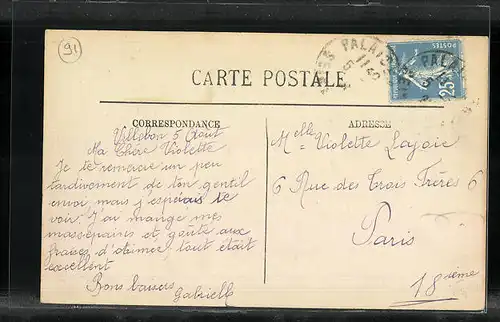 91
PALAISEAU
POSTES
25c
CARTE POSTALE
CORRESPONDANCE
Villebon 5 Août
Ma Chère Violette
Je te remercie un peu
tardivement de ton gentil
envoi mais j'espérais te
voir. J'ai mangé mes
massepains et goûté aux
fraises d'aimée, tout était
excellent
Bons baisers
Gabrielle
ADRESSE
Melle Violette Lajoie
6 Rue des Trois Frères 6
Paris
18ième